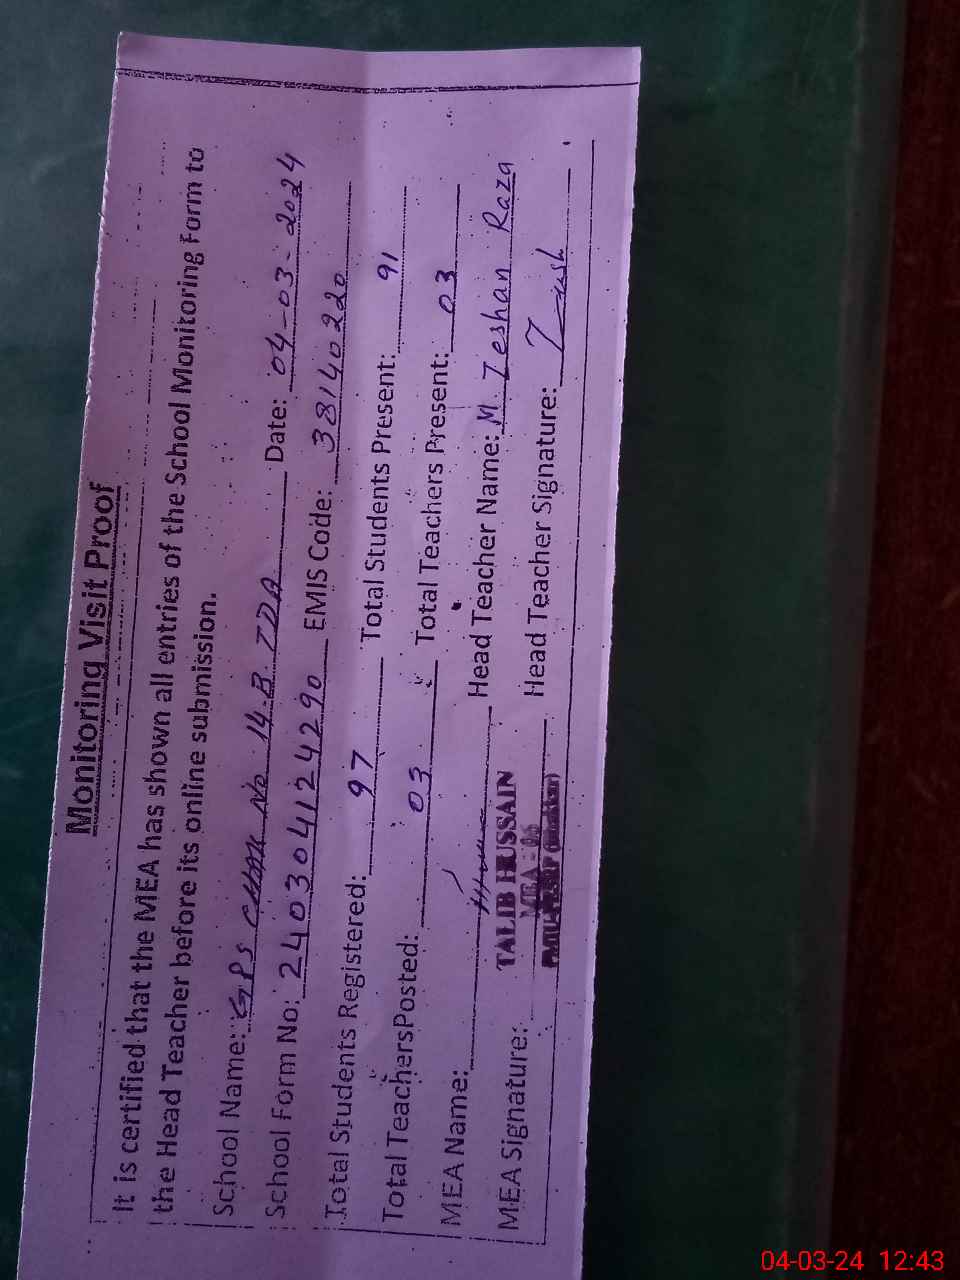 Monitoring Visit Proof
It is certified that the MEA has shown all entries of the School Monitoring Form to
the Head Teacher before its online submission.
School Name: GPS CHAK No 14.B TDA Date: 04-03-2024
School Form No: 240304124290 EMIS Code: 38140220
Total Students Registered: 97 Total Students Present: 91
Total TeachersPosted: 03 Total Teachers Present: 03
MEA Name: Head Teacher Name: M Zeshan Raza
TALIB HUSSAIN
MEA - 06
MEA Signature: Head Teacher Signature:
04-03-24 12:43